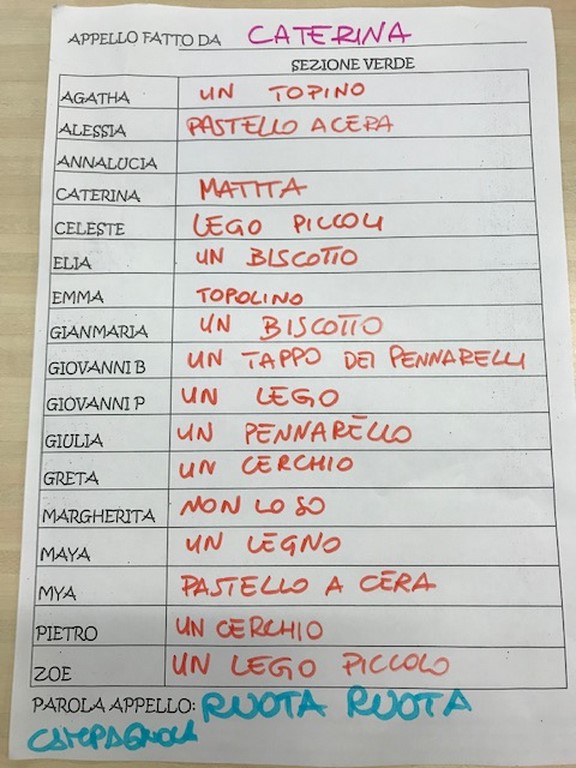 APPELLO FATTO DA CATERINA
SEZIONE VERDE
AGATHA UN TOPINO
ALESSIA PASTELLO A CERA
ANNALUCIA
CATERINA MATITA
CELESTE LEGO PICCOLI
ELIA UN BISCOTTO
EMMA TOPOLINO
GIANMARIA UN BISCOTTO
GIOVANNI B UN TAPPO DEI PENNARELLI
GIOVANNI P UN LEGO
GIULIA UN PENNARELLO
GRETA UN CERCHIO
MARGHERITA NON LO SO
MAYA UN LEGNO
MYA PASTELLO A CERA
PIETRO UN CERCHIO
ZOE UN LEGO PICCOLO
PAROLA APPELLO: RUOTA RUOTA
CAMPAGNOLA